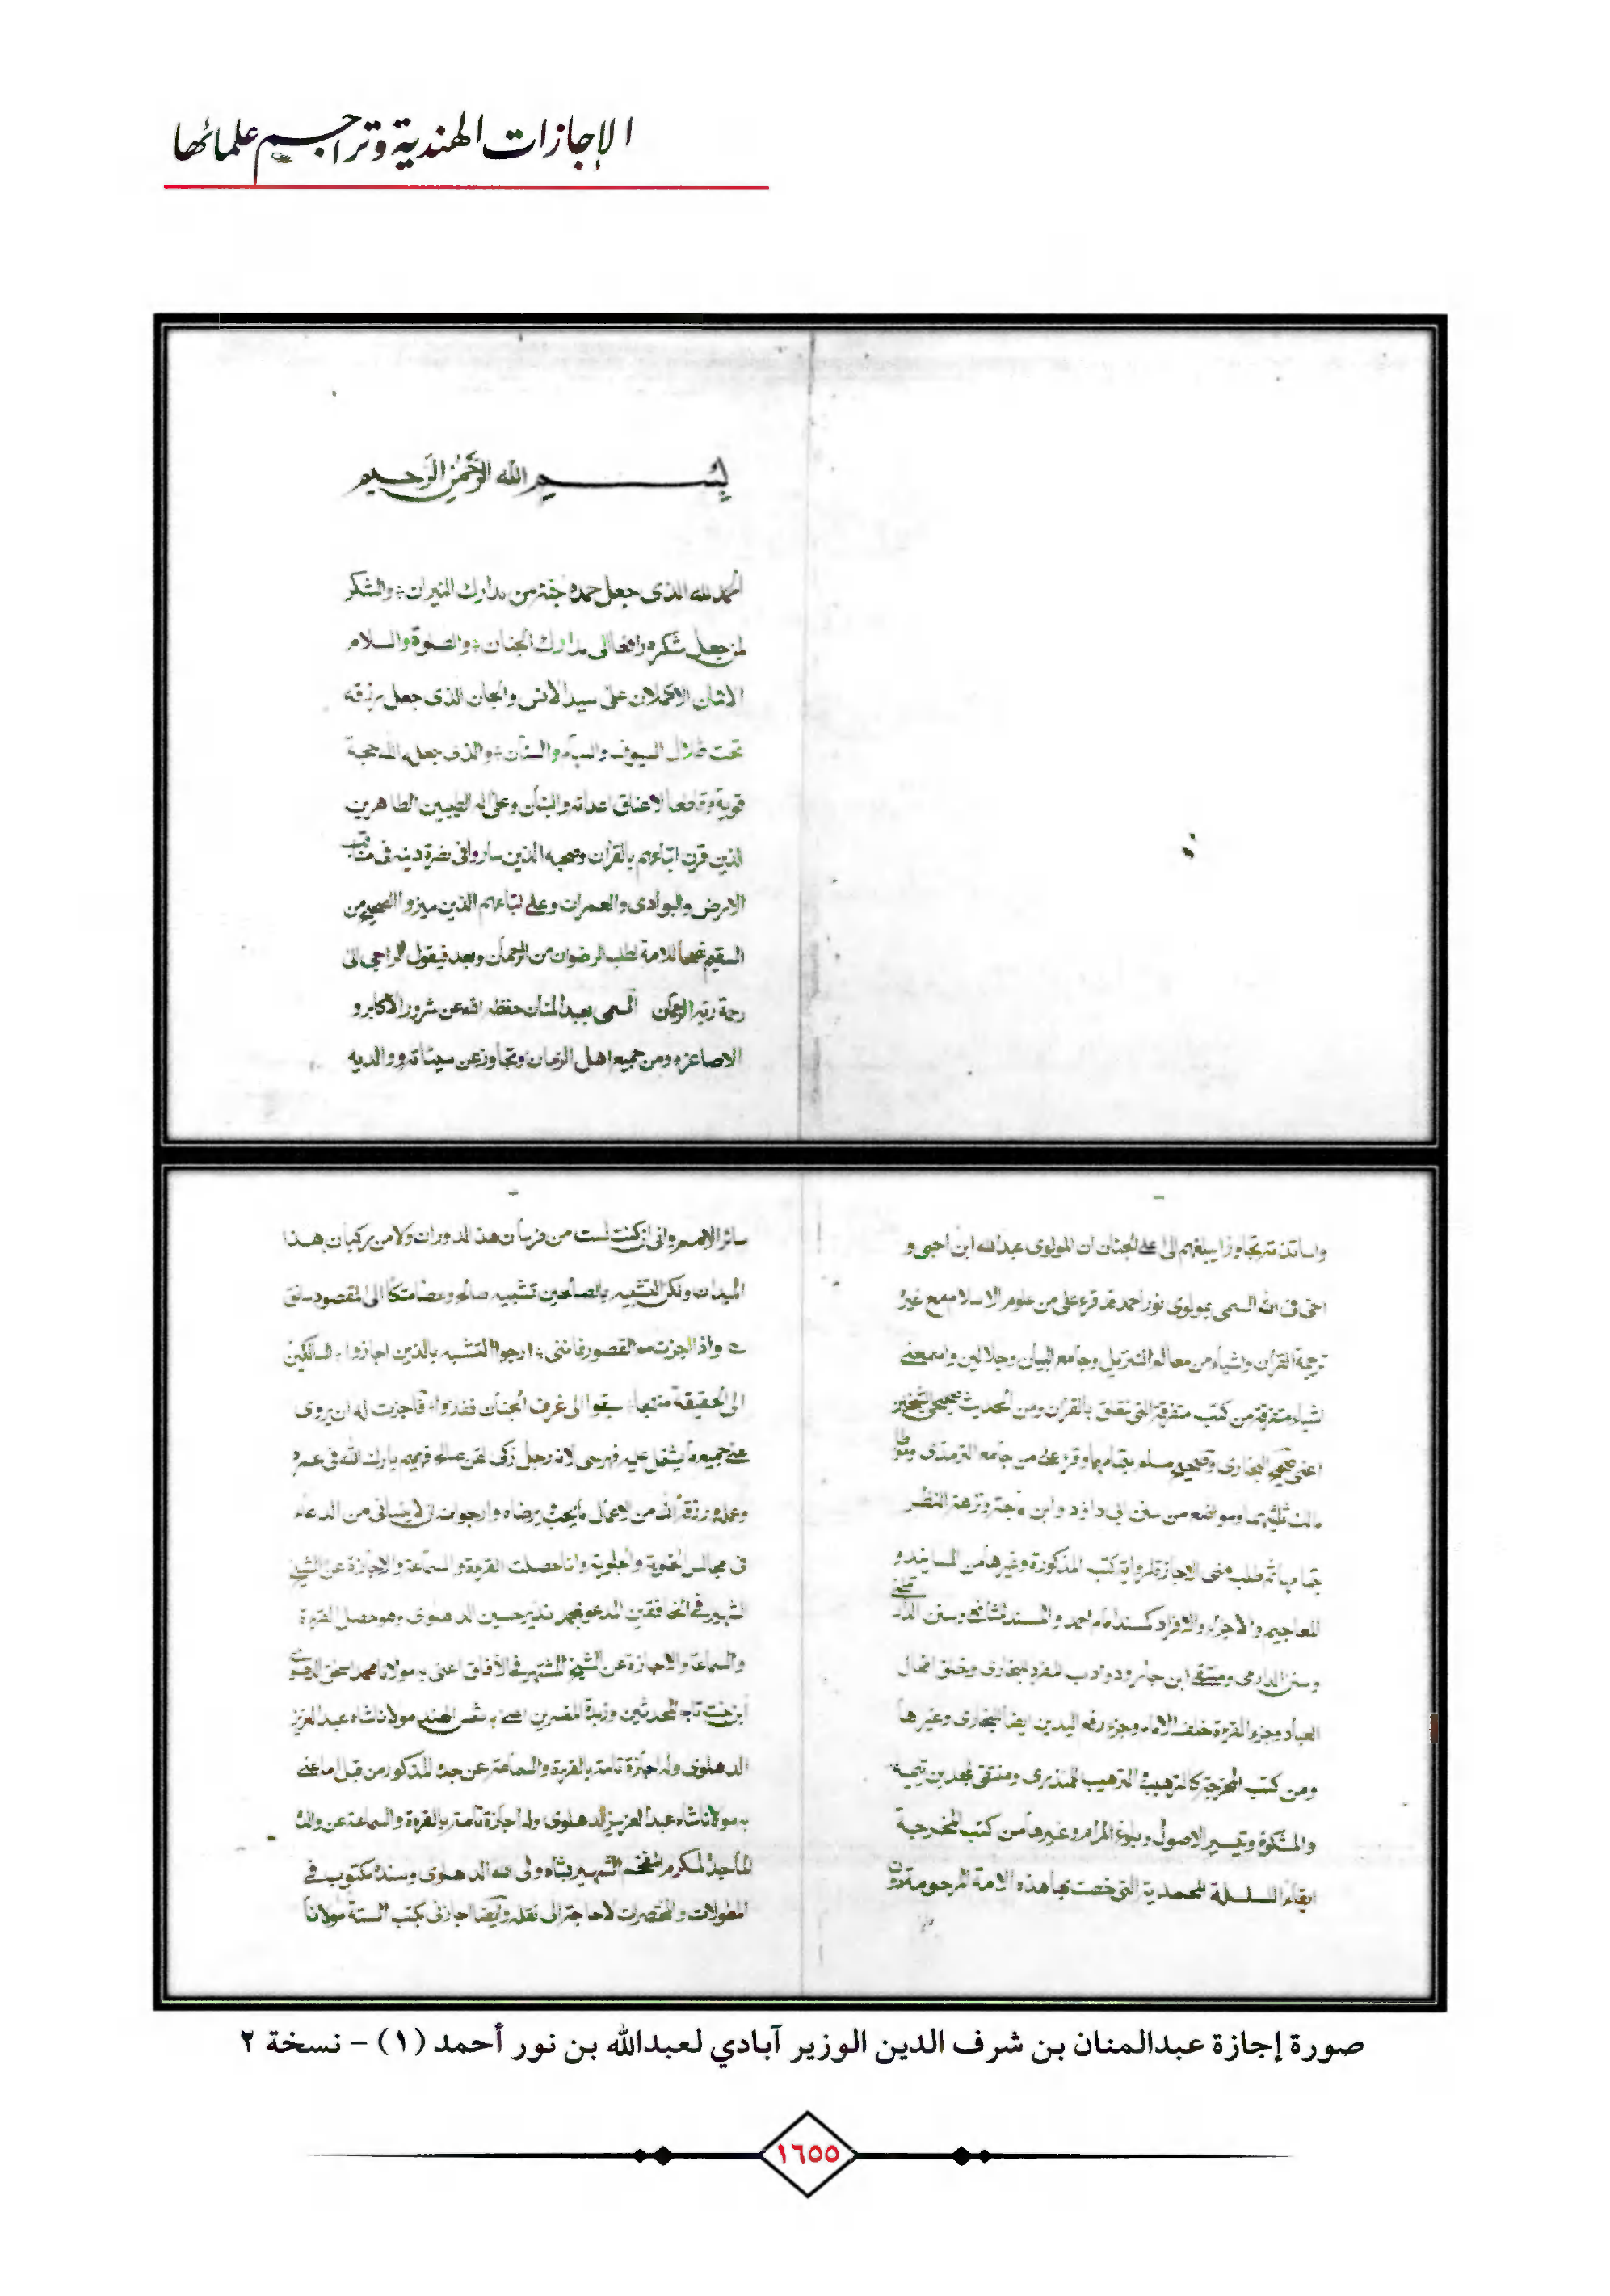 الإجازات الهندية وتراجم علمائها
بسم الله الرحمن الرحيم
الحمد لله الذى جعل حمده جنة من مدارك النيران والشكر
لمن جعل شكره رافعا الى مدارك الجنان والصلوة والسلام
الاتمان الاكملان على سيد الانس والجان الذى جعل رزقه
تحت ظلال السيوف والسنان والذى جعل الله حجة
قوية وقاطعا لاعناق اعدائه وعلى اله الطيبين الطاهرين
الذين قرن اتباعهم بالقران وصحبه الذين ساروا فى نصرة دينه فى
الارض والبوادى والعمران وعلى اتباعهم الذين ميزوا الصحيح من
السقيم نصحا للامة لطلب الرضوان من الرحمان وبعد فيقول الراجى الى
رحمة ربه الرحمان المسمى بعبد المنان حفظه الله عن شرور الاكابر و
الاصاغر ومن جميع اهل الزمان وتجاوز عن سيئاته ووالديه
واساتذته ان المولوى عبد الله ابن احبى و
اخى فى الله المسمى بمولوى نور احمد قد قرء على من علوم الاسلام مع غيره
ترجمة القران واشياء من معالم التنزيل وجامع البيان وجلالين واسمعنى
اشياء متفرقة من كتب متفرقة التى تتعلق بالقران ومن الحديث صحيحى الشيخين
اعنى صحيح البخارى وصحيح مسلم بتمامهما وقرء على من جامع الترمذى
من سنن ابى داود وابن ماجة ونزهة النظر
بتمامها ثم طلب منى الاجازة لرواية كتب المذكورة وغيرها من المسانيد و
المعاجيم والاجزاء والافراد كمسند امام احمد والمسند الشافعى وسنن الدارقطنى
وسنن الدارمى ومنتقى ابن جارود وادب المفرد للبخارى وخلق افعال
العباد وجزء القرءة خلف الامام وجزء رفع اليدين ايضا للبخارى وغيرها
ومن كتب المخرجة كالترغيب الترهيب للمنذرى ومنتقى لمجد بن تيمية
والمشكوة وتيسير الاصول وبلوغ المرام وغيرها من كتب المخرجة
ابقاء السلسلة المحمدية التى خصت بها هذه الامة المرحومة دون
سائر الامم وانى ان كنت لست من فرسان هذا الدوران ولا من ركبان هذا
الميدان ولكن التشبيه بالصالحين تشبيه صالح الى المقصود سائق
واذا اجزت مع القصور فاننى ارجوا التشبه بالذين اجازوا السالكين
الى الحقيقة منهجا سبقوا الى غرف الجنان ففازوا فاجزت له ان يروى
عنى جميع ما يشتمل عليه فهرسى لانه رجل زكى صالح فهيم بارك الله فى عمره
وعمله ورزقه الله من الاعمال ما يحب ويرضاه وارجو منه ان لا ينسانى من الدعاء
فى مجالس الخلوية والجلوية وانا حصلت القرءة والسماعة والاجازة عن الشيخ
الشهير فى الخافقين المدعو بمحمد نذير حسين الدهلوى وهو حصل القرءة
والسماعة والاجازة عن الشيخ المشتهر فى الآفاق اعنى به مولانا محمد اسحق الدهلوى
ابن بنت تاج المحدثين وزبدة المفسرين اعنى به شمس الهند مولانا شاه عبد العزيز
الدهلوى وله اجازة تامة بالقرءة والسماعة عن جده المذكور من قبل اما عنى
به مولانا شاه عبد العزيز الدهلوى وله اجازة تامة بالقرءة والسماعة عن والده
الماجد المكرم المفخم الشهير بشاه ولى الله الدهلوى وسنده مكتوب فى
المطولات والمختصرات لا حاجة الى نقله وايضا اجازنى بكتب الستة مولانا
صورة إجازة عبدالمنان بن شرف الدين الوزير آبادي لعبدالله بن نور أحمد (١) - نسخة ٢
١٦٥٥